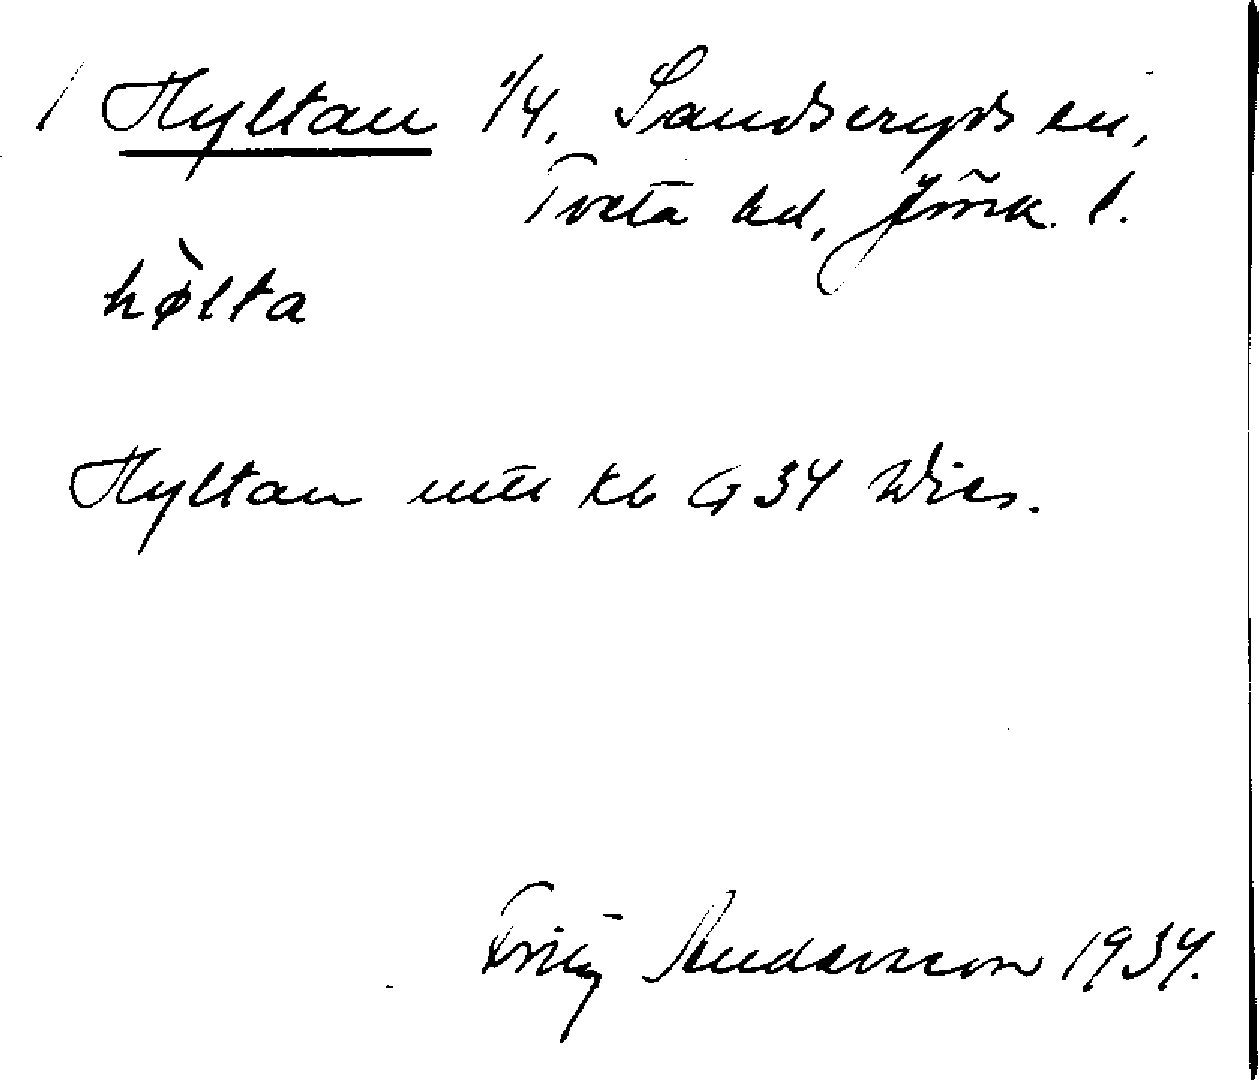 / Hyltan 1/4, Sandseryds sn,
Tveta hd, Jönk. l.
hø̀lta
Hyltan utt kb G 34
Fritz Andersson 1934.